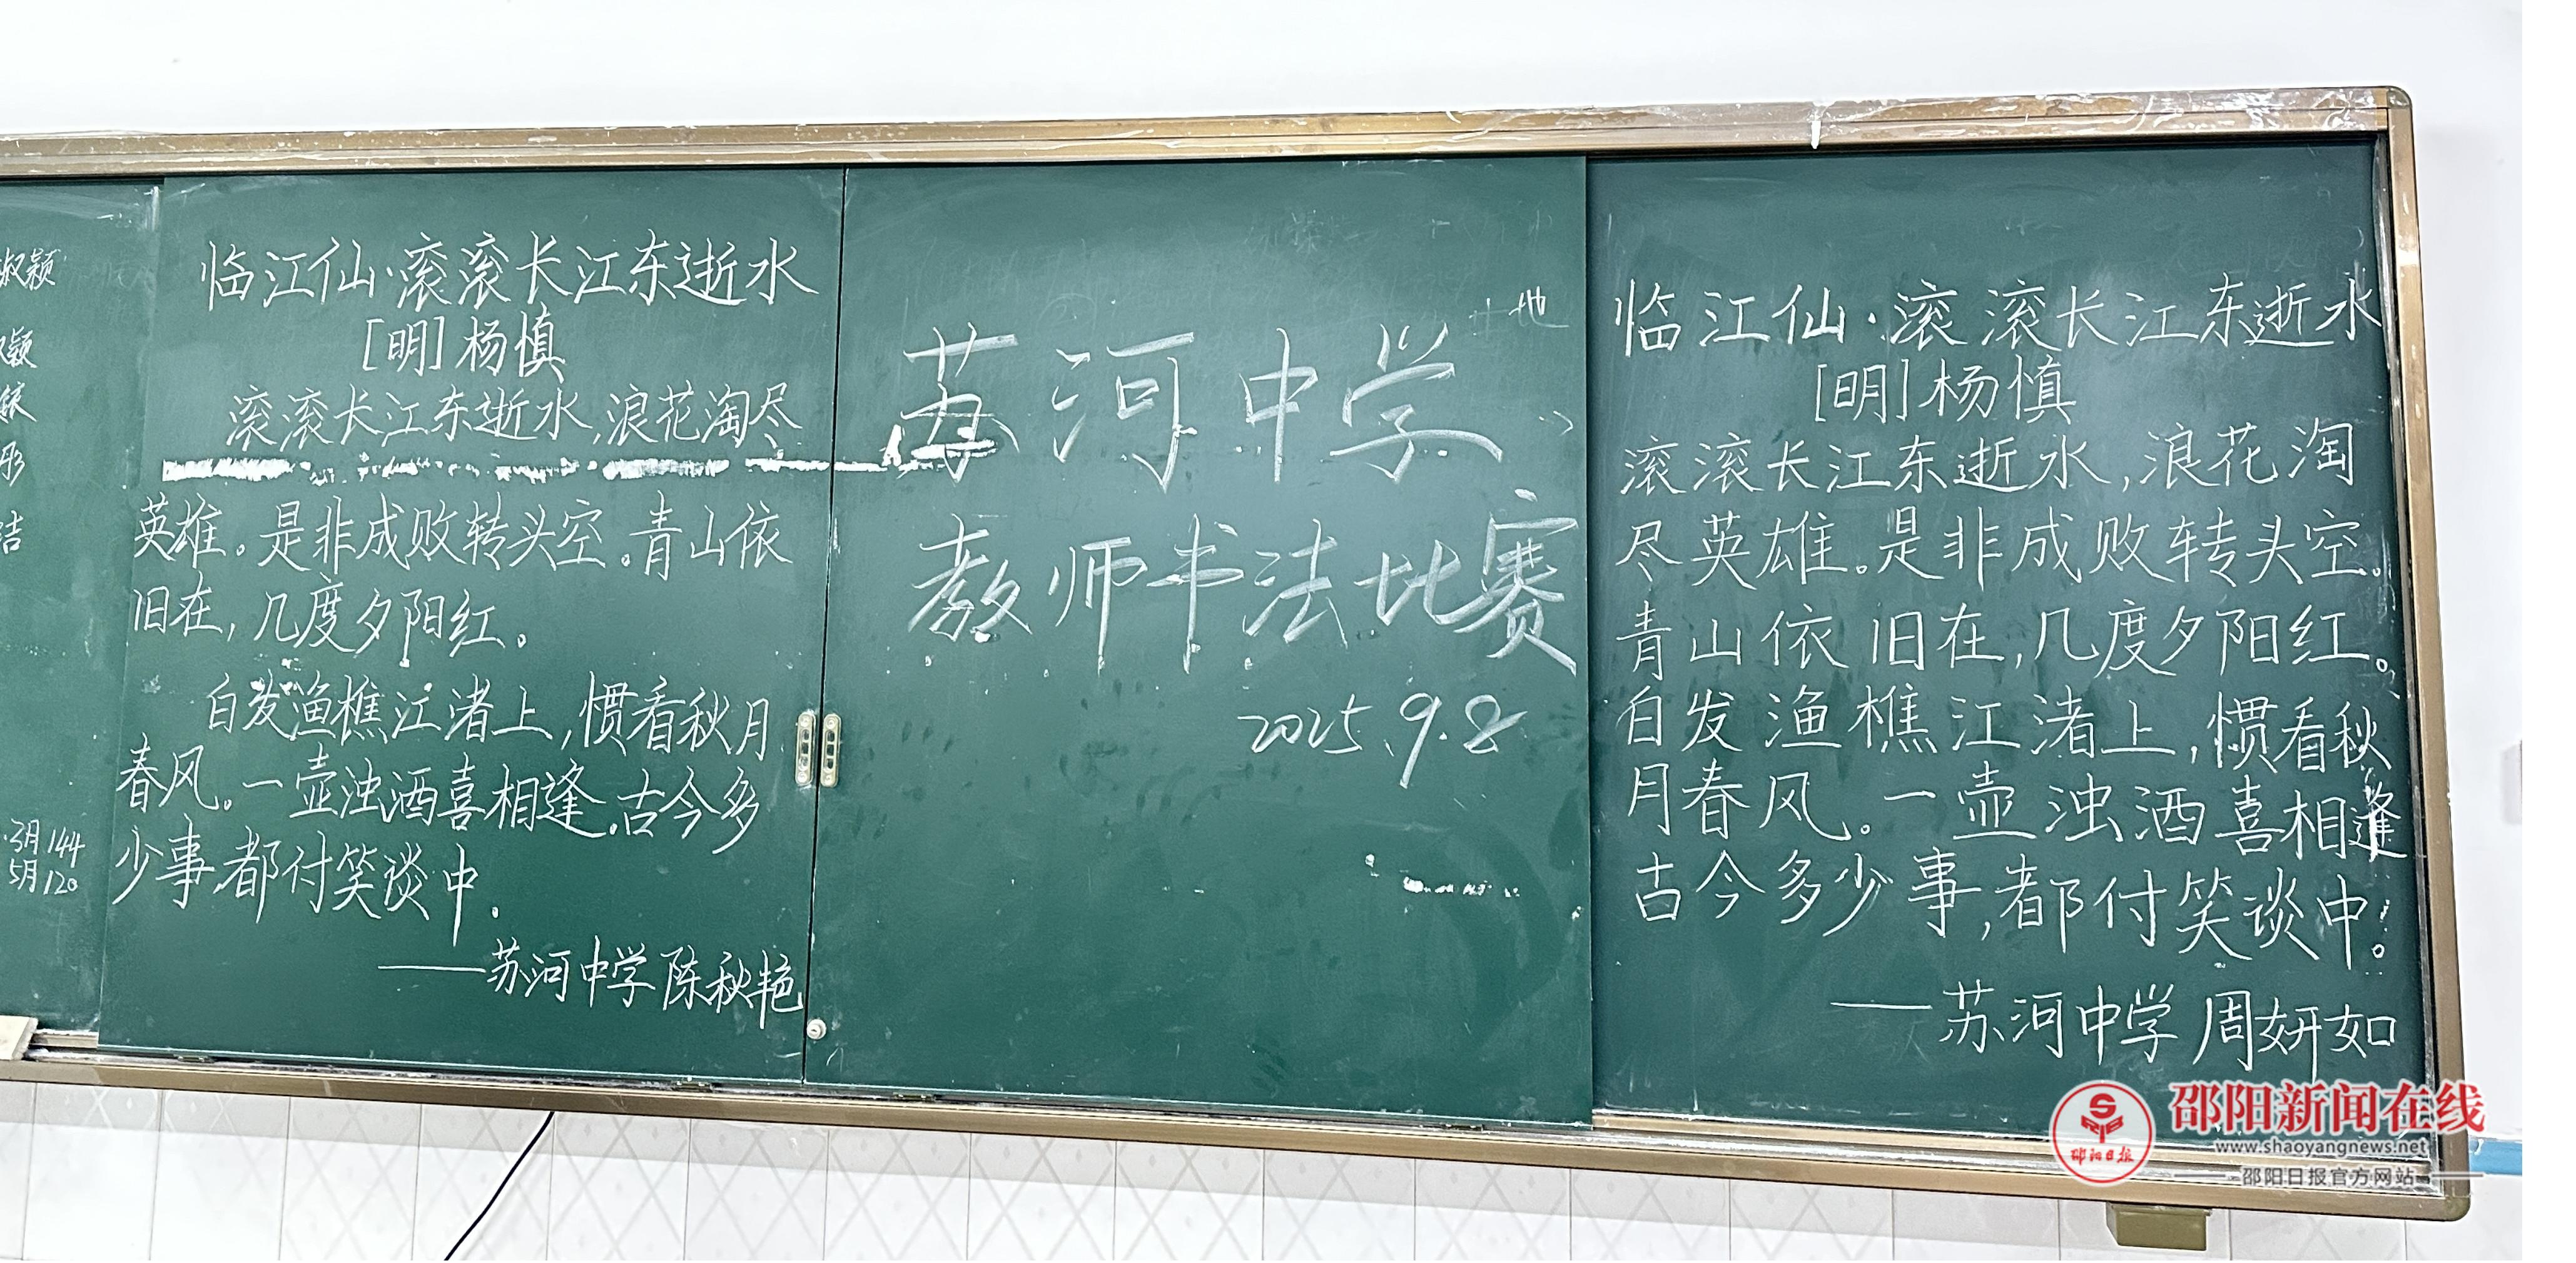 淑颖
3月144
5月120
临江仙·滚滚长江东逝水
[明]杨慎
滚滚长江东逝水,浪花淘尽
英雄。是非成败转头空。青山依
旧在,几度夕阳红。
白发渔樵江渚上,惯看秋月
春风。一壶浊酒喜相逢.古今多
少事,都付笑谈中.
——苏河中学陈秋艳
地
苏河中学
教师书法比赛
2025.9.8
临江仙·滚滚长江东逝水
[明]杨慎
滚滚长江东逝水,浪花淘
尽英雄。是非成败转头空。
青山依旧在,几度夕阳红。
白发渔樵江渚上,惯看秋
月春风。一壶浊酒喜相逢
古今多少事,都付笑谈中。
——苏河中学 周妍如
邵阳日报
邵阳新闻在线
www.shaoyangnews.net
邵阳日报官方网站